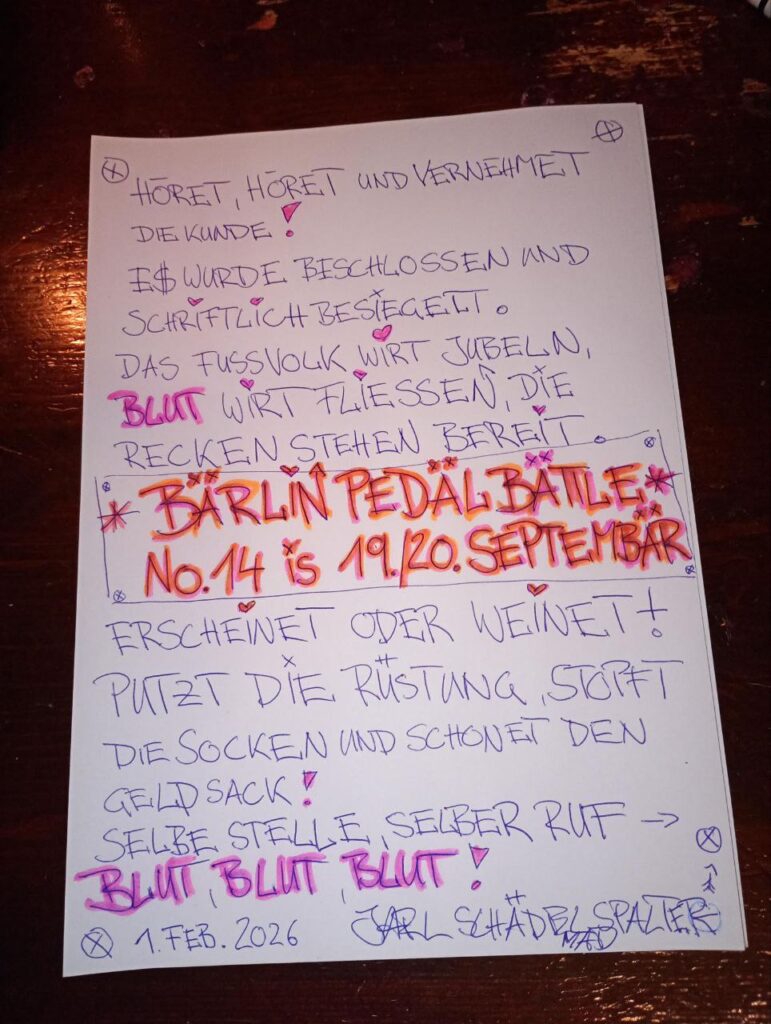 HÖRET, HÖRET UND VERNEHMET
DIE KUNDE!
E$ WURDE BESCHLOSSEN UND
SCHRIFTLICH BESIEGELT.
DAS FUSSVOLK WIRT JUBELN,
BLUT WIRT FLIESSEN, DIE
RECKEN STEHEN BEREIT.
* BÄRLIN PEDÄL BÄTTLE *
No. 14 is 19./20. SEPTEMBÄR
ERSCHEINET ODER WEINET!
PUTZT DIE RÜSTUNG, STOPFT
DIE SOCKEN UND SCHONET DEN
GELDSACK!
SELBE STELLE, SELBER RUF →
BLUT, BLUT, BLUT!
1. FEB. 2026 JARL SCHÄDELSPALTER